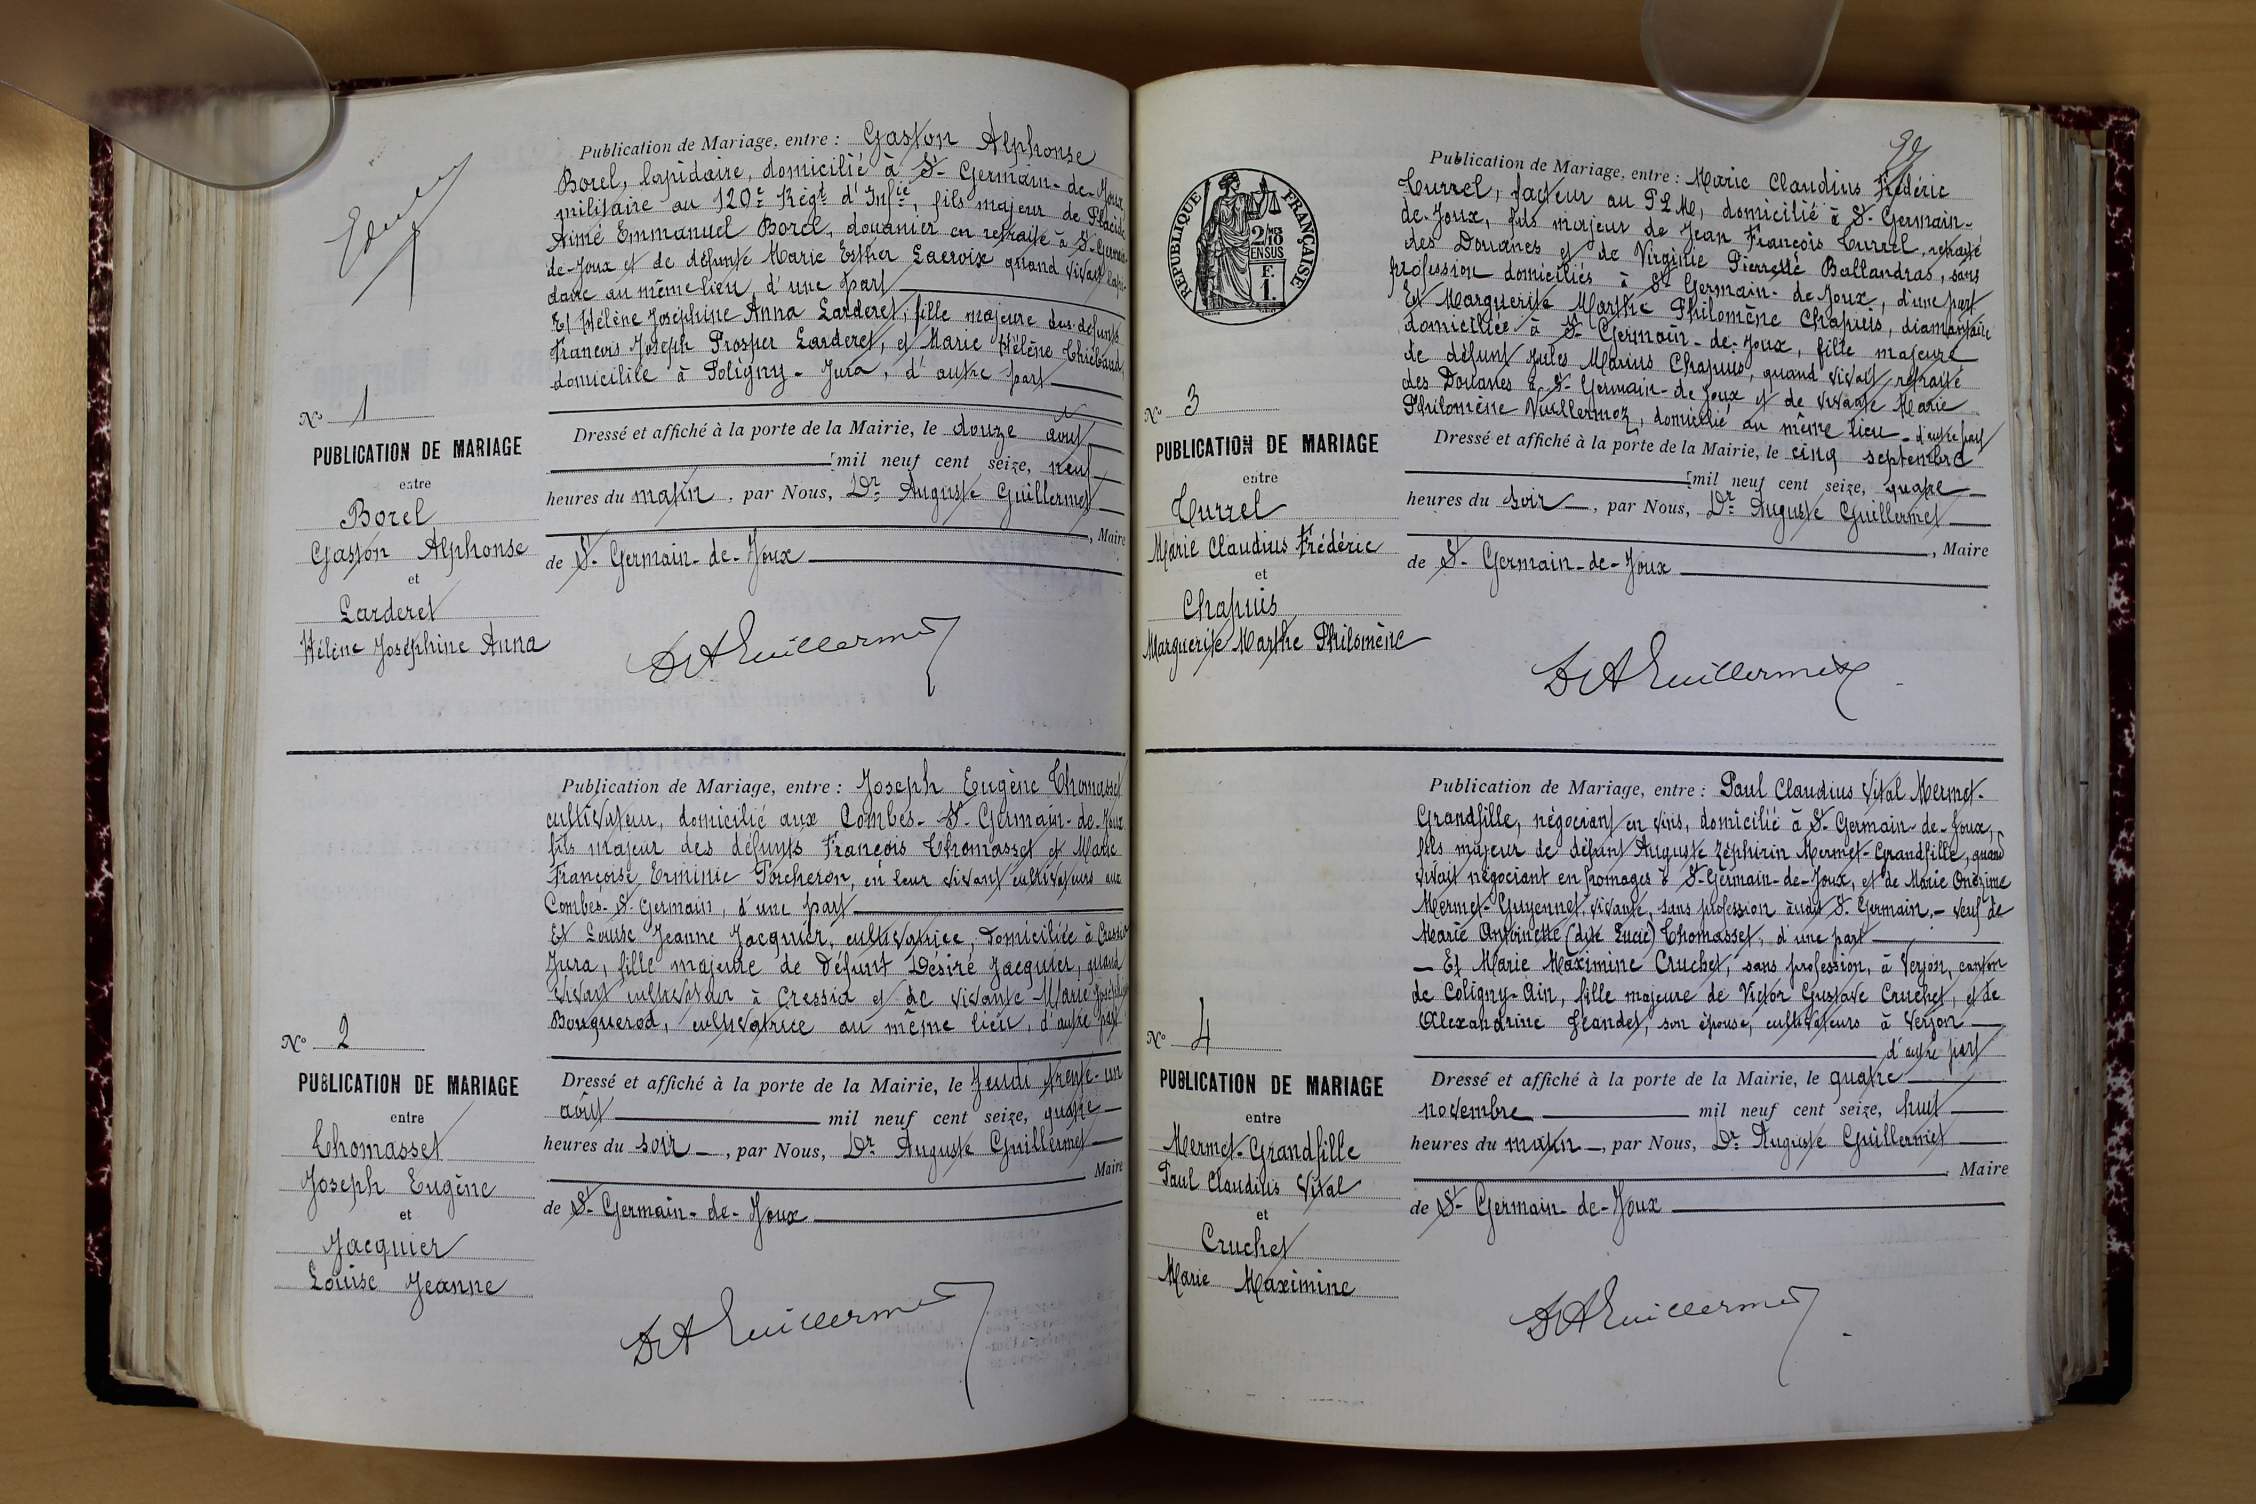 Publication de Mariage, entre : Gaston Alphonse
Borel, lapidaire, domicilié à St Germain-de-Joux
militaire au 120e Régt d'Infie, fils majeur de Placide
Aimé Emmanuel Borel, douanier en retraite à St Germain-
de-Joux et de défunte Marie Esther Lacroix quand vivait lapi-
daire au même lieu, d'une part
Et Hélène Joséphine Anna Larderet, fille majeure des défunts
Francois Joseph Prosper Larderet, et Marie Hélène Thiébaud,
domiciliée à Poligny-Jura, d'autre part
No 1
PUBLICATION DE MARIAGE
entre
Borel
Gaston Alphonse
et
Larderet
Hélène Joséphine Anna
Dressé et affiché à la porte de la Mairie, le douze août
mil neuf cent seize, neuf
heures du matin, par Nous, Dr Auguste Guillermet
, Maire
de St Germain-de-Joux
Dr A Guillermet
Publication de Mariage, entre : Joseph Eugène Thomasset
cultivateur, domicilié aux Combes-St Germain-de-Joux
fils majeur des défunts François Thomasset et Marie
Françoise Erminie Porcheron, en leur vivant cultivateurs aux
Combes-St Germain, d'une part
Et Louise Jeanne Jacquier, cultivatrice, domiciliée à Cressia
Jura, fille majeure de défunt Désiré Jacquier, quand
vivait cultivateur à Cressia et de vivante Marie
Bouquerod, cultivatrice au même lieu, d'autre part
No 2
PUBLICATION DE MARIAGE
entre
Thomasset
Joseph Eugène
et
Jacquier
Louise Jeanne
Dressé et affiché à la porte de la Mairie, le Jeudi trente-un
août mil neuf cent seize, quatre
heures du soir, par Nous, Dr Auguste Guillermet
Maire
de St Germain-de-Joux
Dr A Guillermet
RÉPUBLIQUE FRANÇAISE
2/10
EN SUS
F.
1.
Publication de Mariage, entre : Marie Claudius Frédéric
Turrel, facteur au P L M, domicilié à St Germain-
de-Joux, fils majeur de Jean François Turrel, retraité
des Douanes et de Virginie Pierrette Ballandras, sans
profession domiciliés à St Germain-de-Joux, d'une part
Et Marguerite Marthe Philomène Chapuis, diamantaire
domiciliée à St Germain-de-Joux, fille majeure
de défunt Jules Marius Chapuis, quand vivait retraité
des Douanes à St Germain-de-Joux et de vivante Marie
Philomène Vuillermoz, domicilié au même lieu - d'autre part
No 3
PUBLICATION DE MARIAGE
entre
Turrel
Marie Claudius Frédéric
et
Chapuis
Marguerite Marthe Philomène
Dressé et affiché à la porte de la Mairie, le cinq septembre
mil neuf cent seize, quatre
heures du soir, par Nous, Dr Auguste Guillermet
, Maire
de St Germain-de-Joux
Dr A Guillermet
Publication de Mariage, entre : Paul Claudius Vital Mermet-
Grandfille, négociant en vins, domicilié à St Germain-de-Joux,
fils majeur de défunt Auguste Zéphirin Mermet-Grandfille, quand
vivait négociant en fromages à St Germain-de-Joux, et de Marie Onézime
Mermet-Guyennet, vivante, sans profession audit St Germain, - veuf de
Marie Antoinette (dite Lucie) Thomasset, d'une part
- Et Marie Maximine Cruchet, sans profession, à Verjon, canton
de Coligny-Ain, fille majeure de Victor Gustave Cruchet, et de
Alexandrine Jeandet, son épouse, cultivateurs à Verjon
d'autre part
No 4
PUBLICATION DE MARIAGE
entre
Mermet-Grandfille
Paul Claudius Vital
et
Cruchet
Marie Maximine
Dressé et affiché à la porte de la Mairie, le quatre
novembre mil neuf cent seize, huit
heures du matin, par Nous, Dr Auguste Guillermet
, Maire
de St Germain-de-Joux
Dr A Guillermet